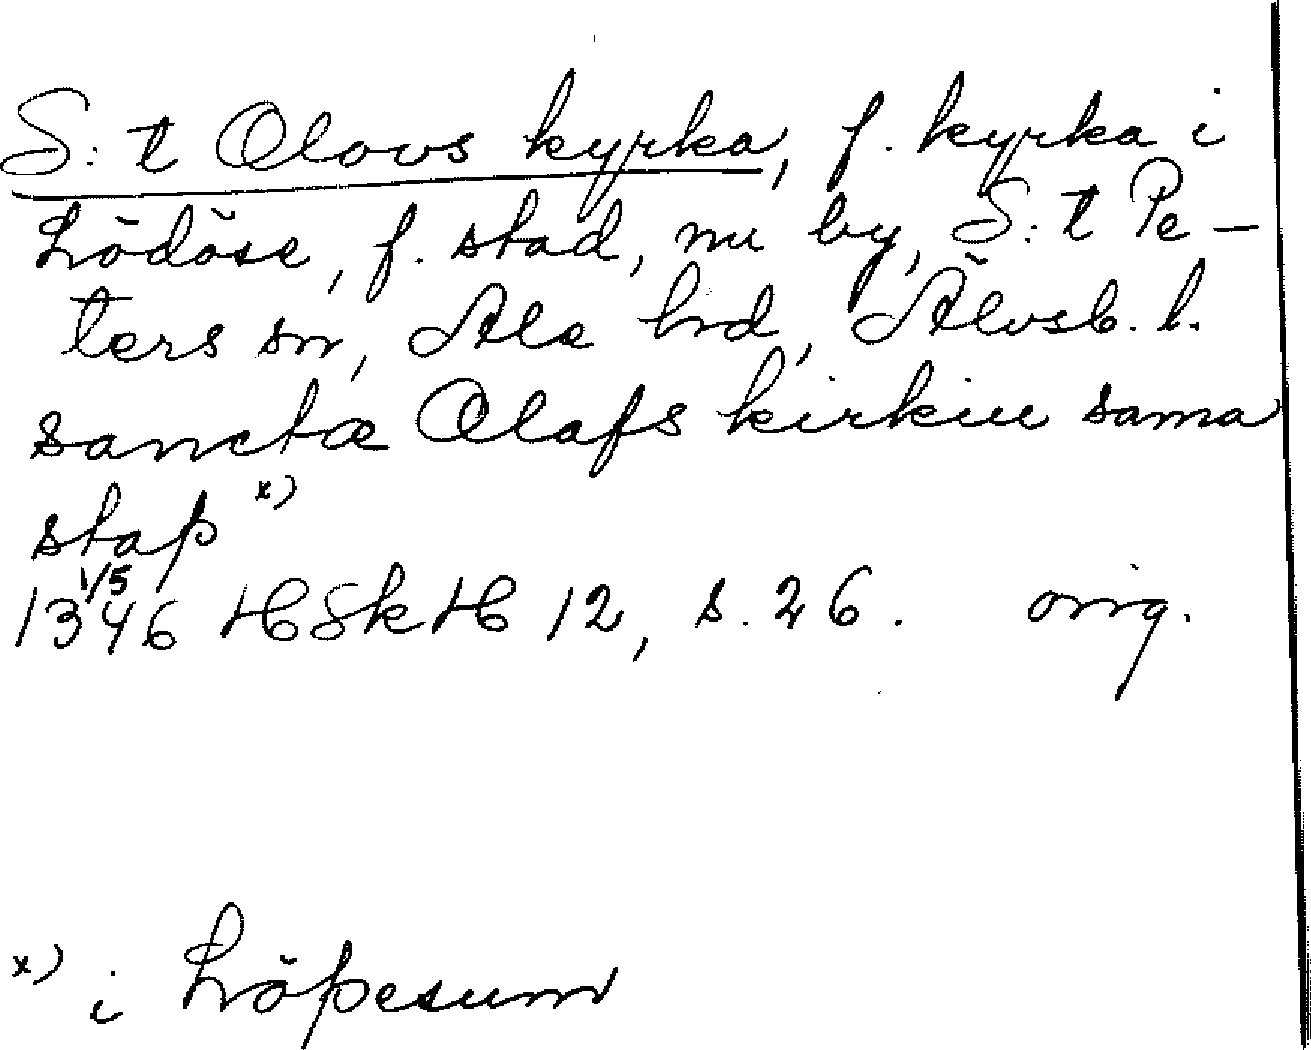 S:t Olovs kyrka, f. kyrka i
Lödöse, f. stad, nu by, S:t Pe-
ters sn, Ale hd, Älvsb. l.
sanctæ Olafs kirkiu sama
staþ x)
1/5
1346 HSkH 12, s. 26. orig.
x) i Löþesum